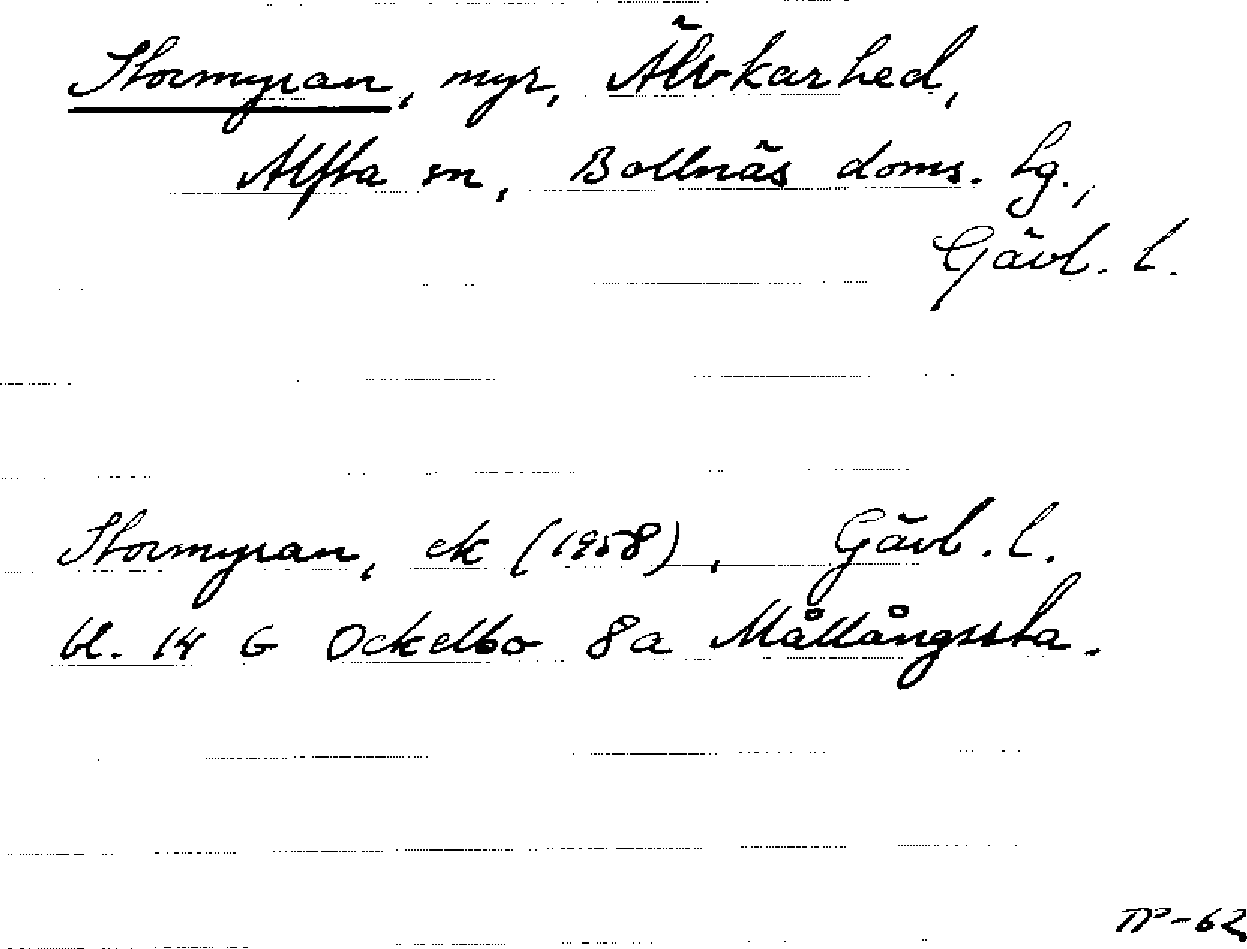 Stormyran, myr, Älvkarhed,
Alfta sn, Bollnäs doms. tg.,
Gävl. l.
Stormyran, ek (1958), Gävl. l.
bl. 14 G Ockelbo 8a Mållångssta.
TP-62